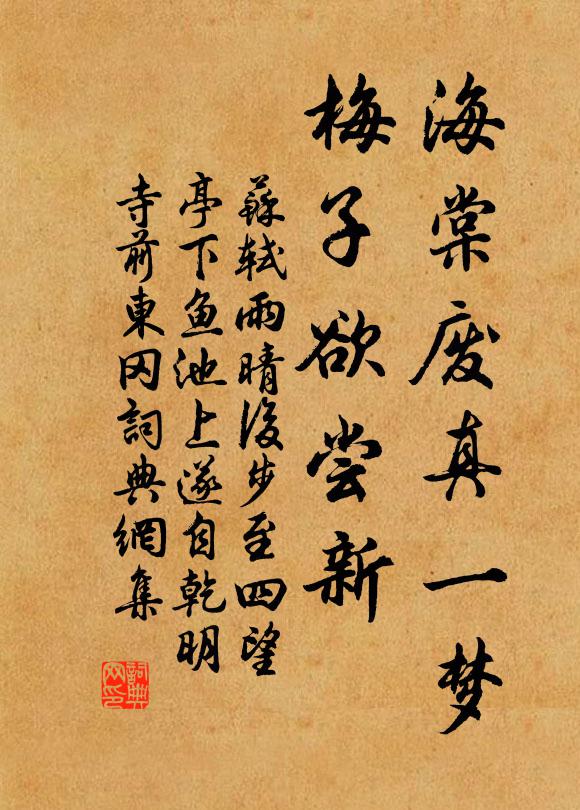 海棠废真一梦
梅子欲尝新
蘇軾雨晴後步至四望
亭下鱼池上遂自乾明
寺前東冈詞典網集
詞典网印